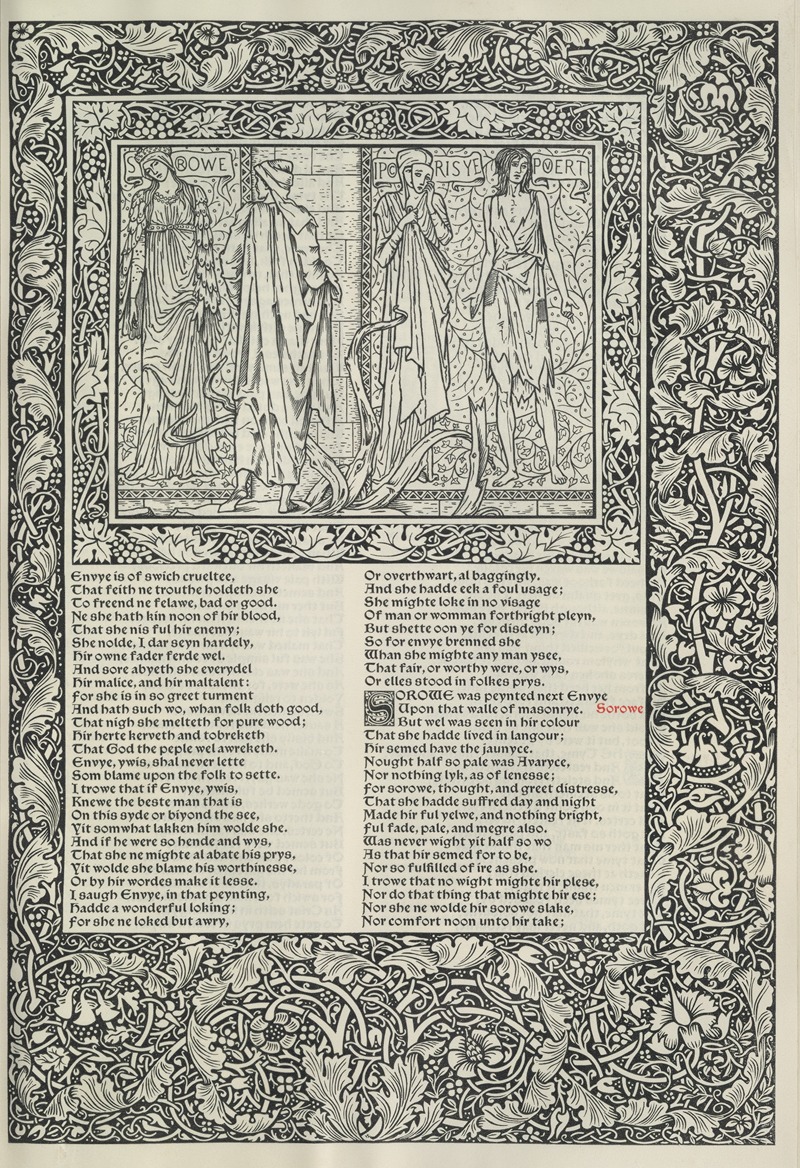 S ROWE
IPO RISYE
POVERT
Envye is of swich crueltee,
That feith ne trouthe holdeth she
To freend ne felawe, bad or good.
Ne she hath kin noon of hir blood,
That she nis ful hir enemy;
She nolde, I dar seyn hardely,
Hir owne fader ferde wel.
And sore abyeth she everydel
Hir malice, and hir maltalent:
For she is in so greet turment
And hath such wo, whan folk doth good,
That nigh she melteth for pure wood;
Hir herte kerveth and tobreketh
That God the peple wel awreketh.
Envye, ywis, shal never lette
Som blame upon the folk to sette.
I trowe that if Envye, ywis,
Knewe the beste man that is
On this syde or biyond the see,
Yit somwhat lakken him wolde she.
And if he were so hende and wys,
That she ne mighte al abate his prys,
Yit wolde she blame his worthinesse,
Or by hir wordes make it lesse.
I saugh Envye, in that peynting,
Hadde a wonderful loking;
For she ne loked but awry,
Or overthwart, al baggingly.
And she hadde eek a foul usage;
She mighte loke in no visage
Of man or womman forthright pleyn,
But shette oon ye for disdeyn;
So for envye brenned she
Whan she mighte any man ysee,
That fair, or worthy were, or wys,
Or elles stood in folkes prys.
SOROWE was peynted next Envye
Upon that walle of masonrye. Sorowe
But wel was seen in hir colour
That she hadde lived in langour;
Hir semed have the jaunyce.
Nought half so pale was Avaryce,
Nor nothing lyk, as of lenesse;
For sorowe, thought, and greet distresse,
That she hadde suffred day and night
Made hir ful yelwe, and nothing bright,
Ful fade, pale, and megre also.
Was never wight yit half so wo
As that hir semed for to be,
Nor so fulfilled of ire as she.
I trowe that no wight mighte hir plese,
Nor do that thing that mighte hir ese;
Nor she ne wolde hir sorowe slake,
Nor comfort noon unto hir take;